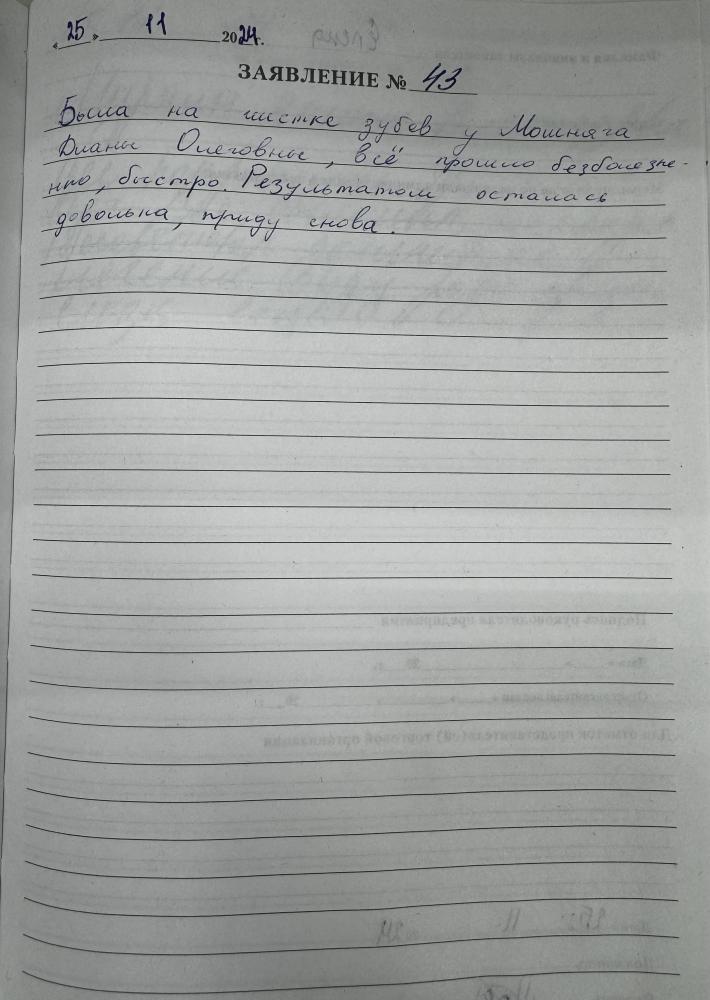 «25» 11 2024.
ЗАЯВЛЕНИЕ № 43
Была на чистке зубов у Мошняга
Дианы Олеговны, всё прошло безболезне-
нно, быстро. Результатом осталась
довольна, приду снова.